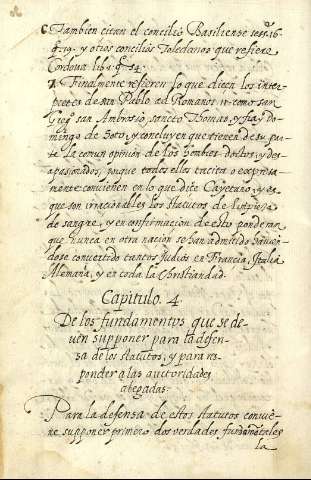 Tambien citan el concilio Basiliense sess. 16
q. 19. y otros concilios Toledanos que refiere
Cordoua lib. q. 54.
Finalmente refieren lo que dicen los inter-
pretes de san Pablo ad Romanos 11. como san
san Ambrosio, sancto Thomas, y fray Do-
mingo de Soto, y concluyen que tienen de su par-
te la comun opinión de los hombres doctos, y des-
apasionados, porque todos ellos tacita o expresa-
mente conuienen en lo que dice Cayetano, y es
que son irracionables los statutos de limpieza
de sangre, y en confirmacion de esto ponderan
que nunca en otra nacion se han admitido hauien-
dose conuertido tantos Judios en Francia, Italia
Alemana, y en toda la Christiandad.
Capitulo. 4
De los fundamentos que se de-
uen supponer para la defen-
sa de los statutos, y para res-
ponder a las auctoridades
alegadas.
Para la defensa de estos statutos conuie-
ne supponer primero dos verdades fundamentales
la